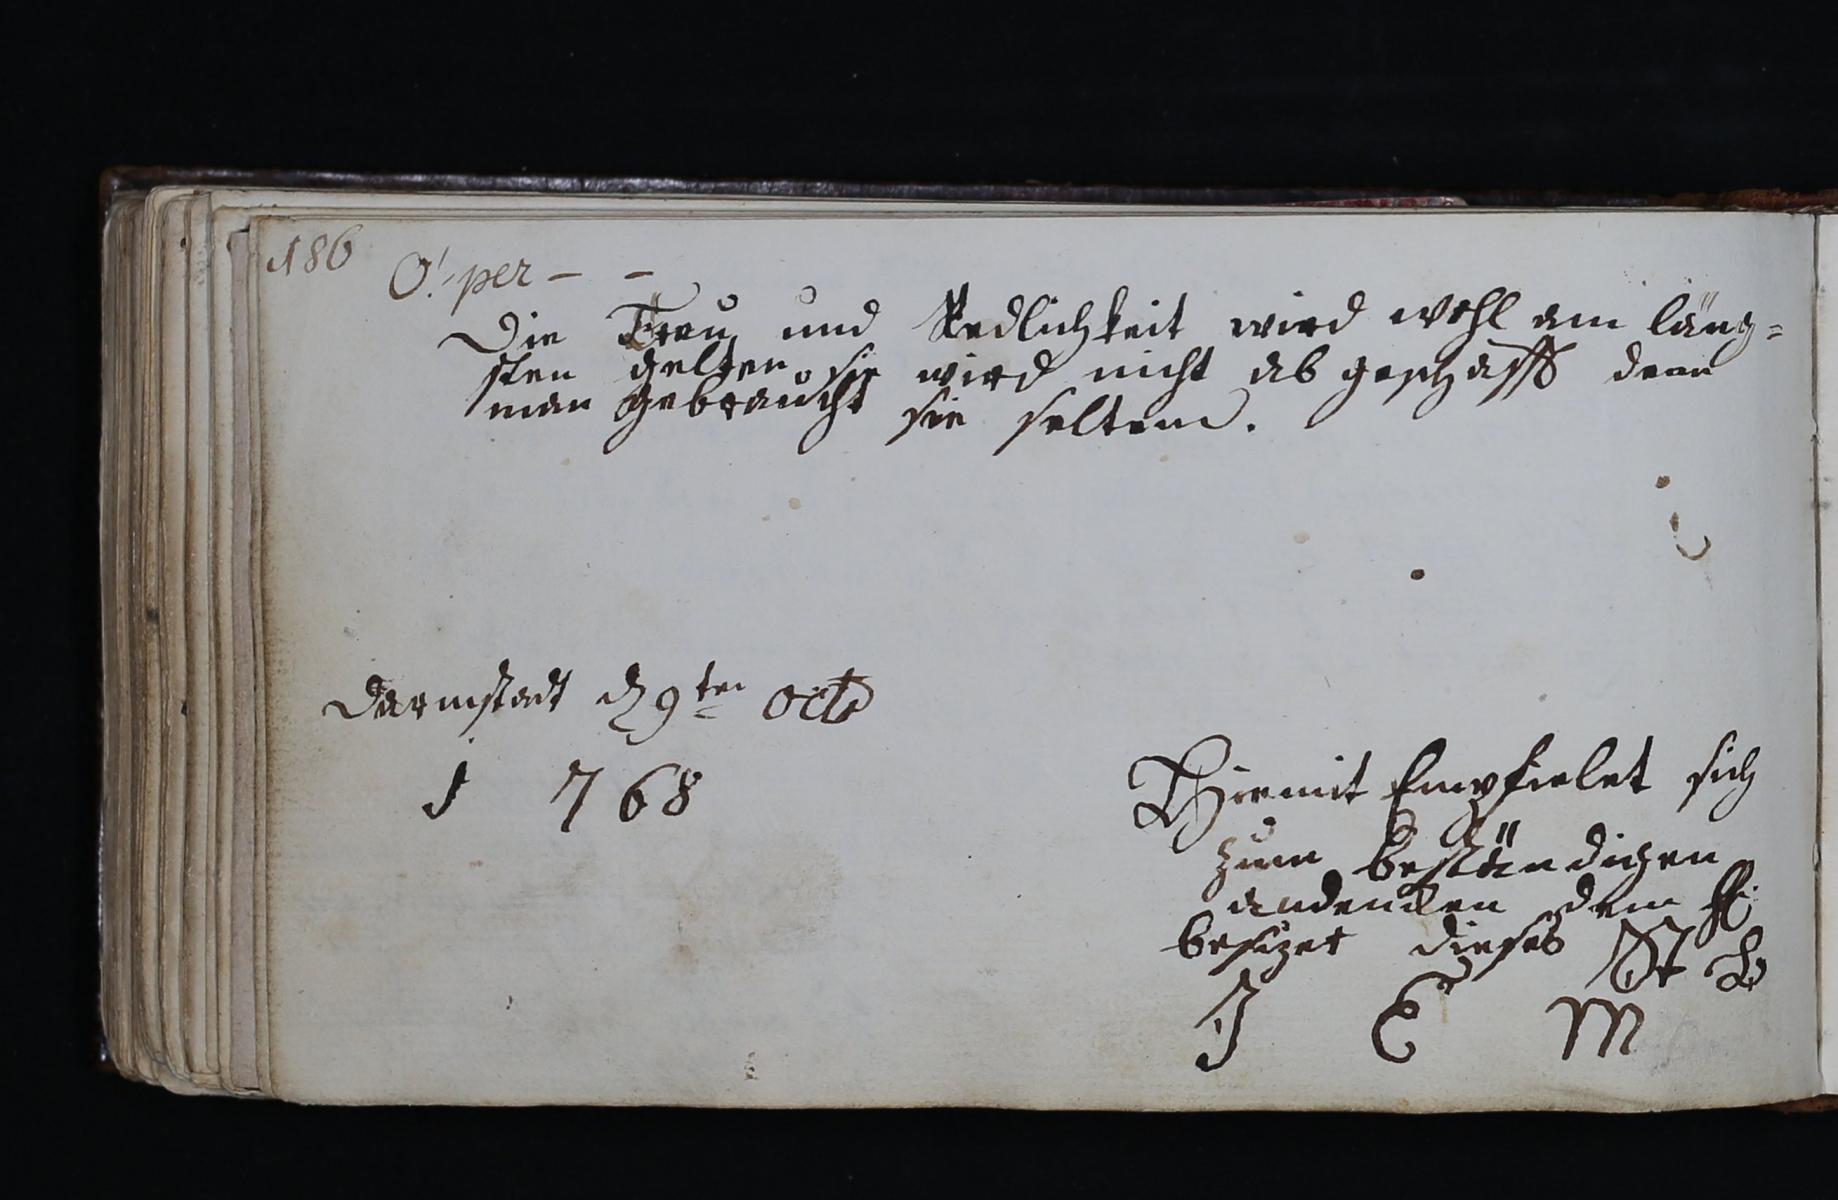 186
O! per – –
Die Treu und Redlichkeit wird wohl am läng=
sten gelten, sie wird nicht ab geschafft denn
man gebraucht sie selten.
Darmstadt d 9ten Octb
1768
Hiermit Empfielet sich
zum beständigen
andencken dem H:
besizer dieses St B
J E M